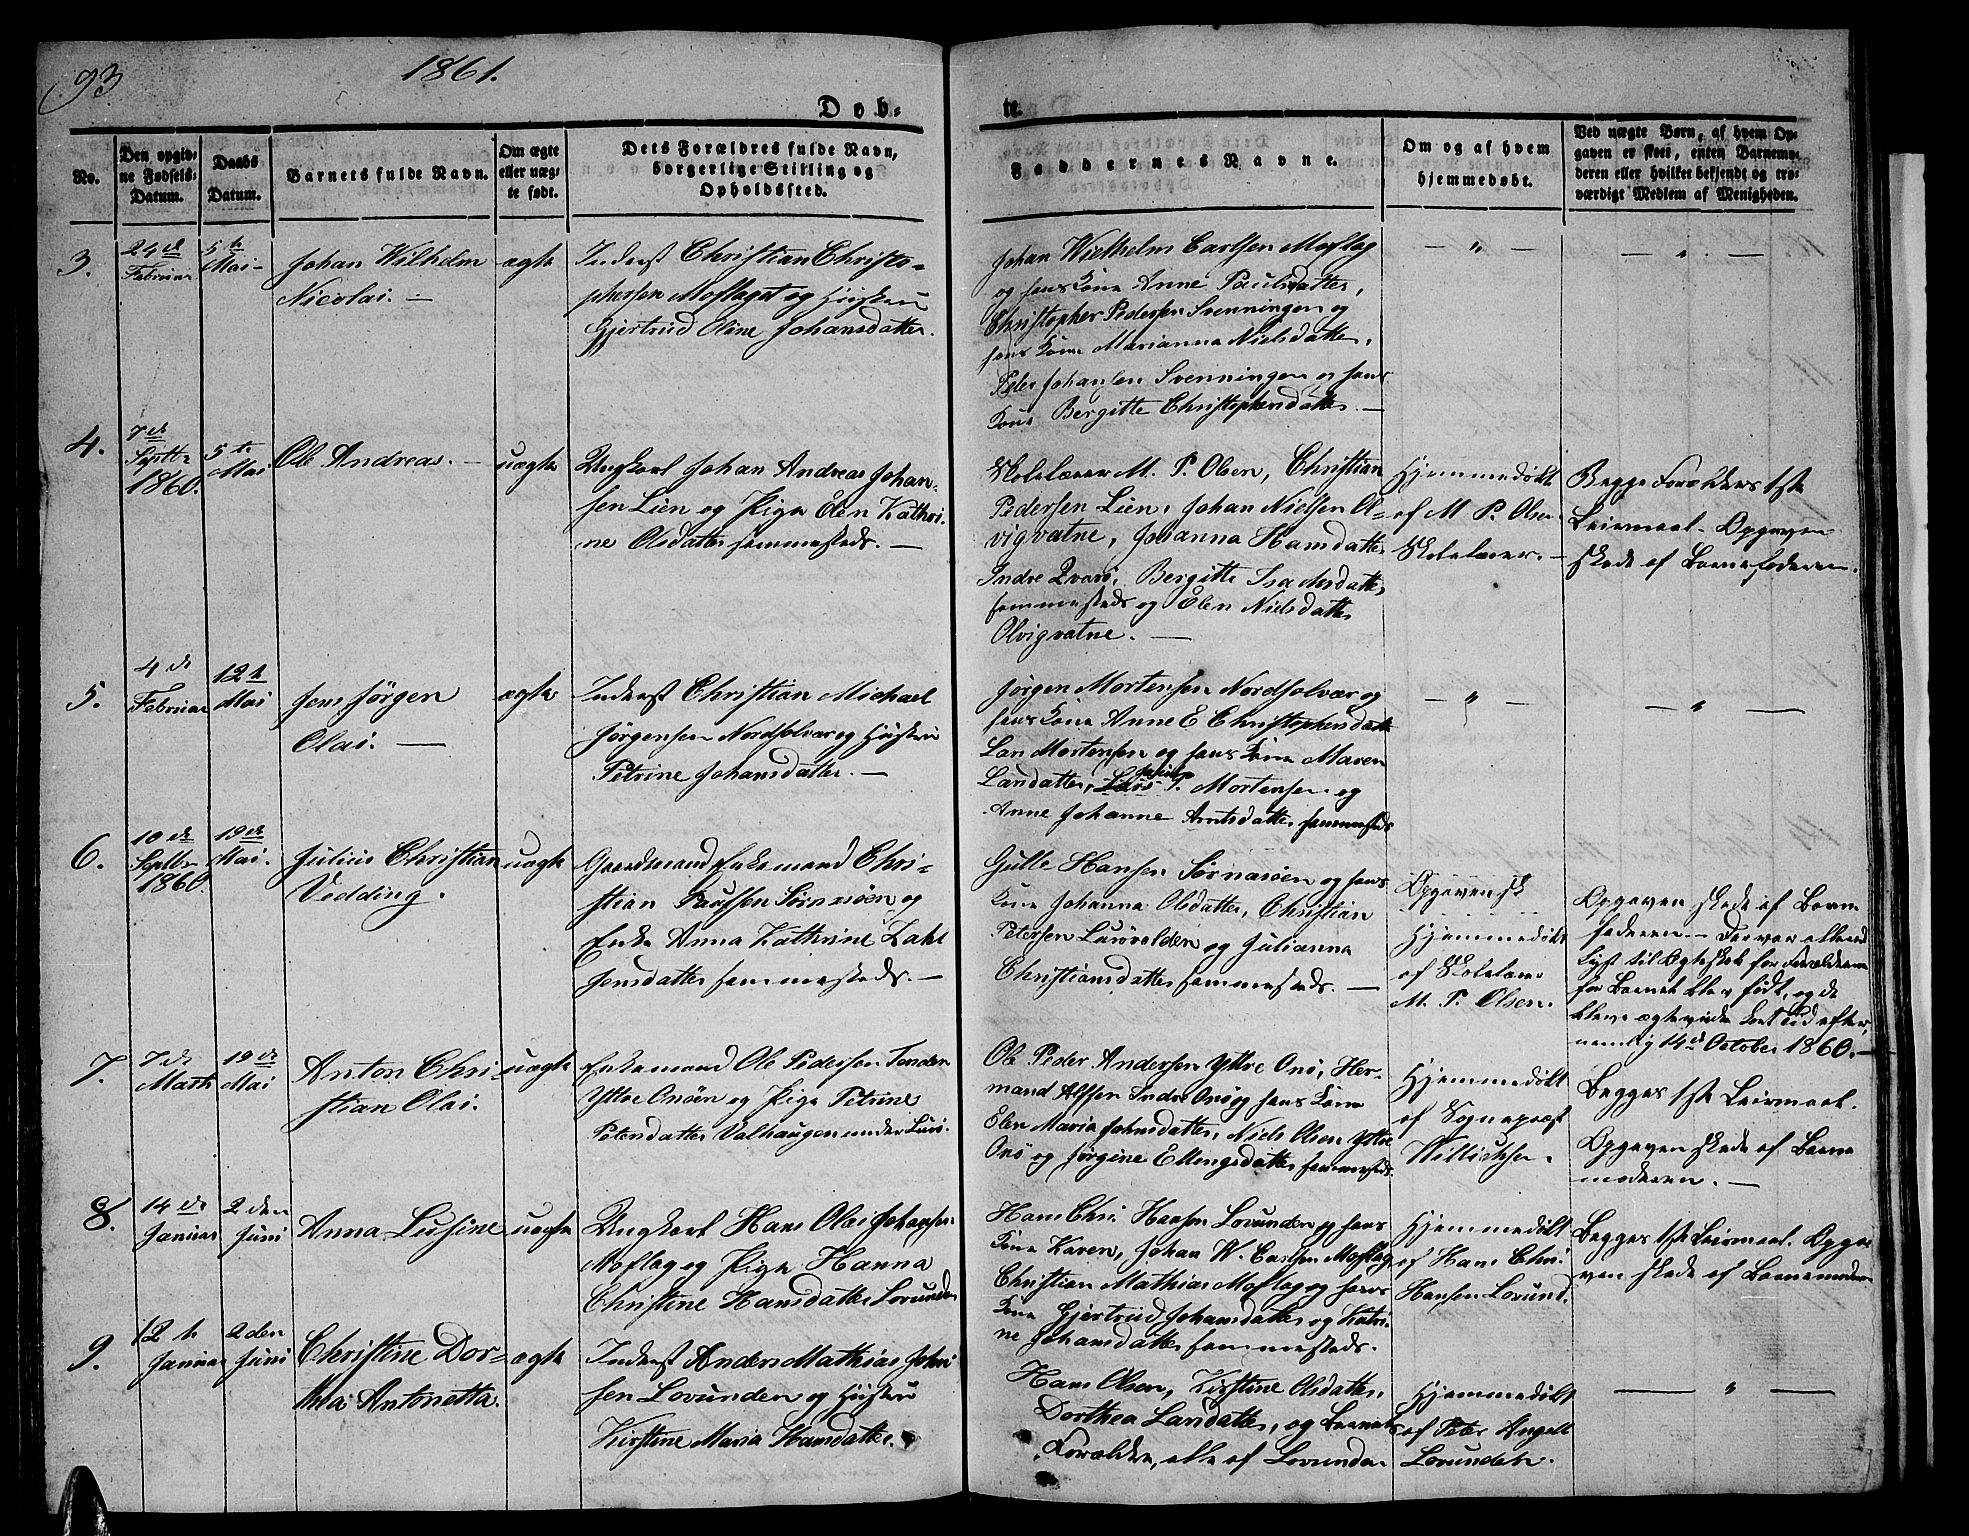 93
1861.
Døb-
te.
No.
Den opgiv-
ne Fødsels-
Datum.
Daabs
Datum.
Barnets fulde Navn.
Om ægte
eller uæg-
te født.
Dets Forældres fulde Navn,
borgerlige Stilling og
Opholdssted.
Faddernes Navne.
Om og af hvem
hjemmedøbt.
Ved uægte Børn, af hvem Op-
gaven er skeet, enten Barnemo-
deren eller hvilket bekjendt og tro-
værdigt Medlem af Menigheden.
3.
24de
Februar
5te
Mai
Johan Wilhelm
Nicolai. —
ægte
Inderst Christian Christo-
phersen Moflaget og Hustru
Gjertrud Oline Johansdatter.
Johan Wilhelm Carlsen Moflag
og hans Kone Anne Paulsdatter,
Christopher Pedersen Svenningen og
hans Kone Marianna Nielsdatter,
Peter Johansen Svenningen og hans
Kone Bergitte Christophersdatter. —
— " —
— " —
4.
7de
Septbr
1860.
5te
Mai
Ole Andreas. —
uægte
Ungkarl Johan Andreas Johan-
sen Lien og Pige Elen Kathri-
ne Olsdatter sammesteds. —
Skolelærer M. P. Olsen, Christian
Pedersen Lien, Johan Nielsen Ol-
vigvatne, Johanna Hansdatter
Indre Qvarø, Bergitte Isachsdatter
sammesteds og Elen Nielsdatter
Olvigvatne. —
Hjemmedøbt
af M. P. Olsen
Skolelærer. —
Begge Forældres 1ste
Leiermaal. Opgaven
skede af Barnefaderen.
5.
4de
Februar
12te
Mai
Jens Jørgen
Olai. —
ægte
Inderst Christian Michael
Jørgensen Nordsolvær og Hustru
Petrine Johansdatter. —
Jørgen Mortensen Nordsolvær og
hans Kone Anne E Christophersdatter
Lars Mortensen og hans Kone Maren
Larsdatter, P. Mortensen og
Anne Johanne Arntsdatter sammesteds
— " —
— " —
6.
10de
Septbr
1860.
19de
Mai.
Julius Christian
Vedding.
uægte
Gaardmand Enkemand Chri-
stian Paulsen Sørnæsøen og
Enke Anna Kathrine Zahl
Jensdatter sammesteds. —
Gulle Hansen Sørnæsøen og hans
Kone Johanna Olsdatter, Christian
Petersen Lurøvolden og Julianna
Christiansdatter sammesteds. —
Opgaven sk
Hjemmedøbt
af Skolelærer
M. P. Olsen.
Opgaven skede af Barne
faderen. — Der var allerede
lyst til Ægteskab for Forældrene
før Barnet blev født, og de
bleve ægteviede kort Tid efter,
nemlig 14de October 1860. —
7.
7de
Marts
19de
Mai
Anton Chri-
stian Olai.
uægte
Enkemand Ole Pedersen Tonder
Yttre Onøen og Pige Petrine
Petersdatter Valhaugen under Lurø.
Ole Peder Andersen Yttre Onø, Her-
mand Alfsen Indre Onø og hans Kone
Elen Maria Johnsdatter, Niels Olsen Yttre
Onø og Jørgine Ellingsdatter sammesteds.
Hjemmedøbt
af Sognepræst
Willichsen.
Begges 1ste Leiermaal.
Opgaven skede af Barne
moderen. —
8.
14de
Januar
2den
Juni
Anna Lusine
uægte
Ungkarl Hans Olai Johansen
Moflag og Pige Hanna
Christine Hansdatter Lovunden
Hans Chri. Hansen Lovunden og hans
Kone Karen, Johan W. Carlsen Moflag,
Christian Mathias Moflag og hans
Kone Gjertrud Johansdatter og Katri-
ne Johansdatter sammesteds.
Hjemmedøbt
af Hans Chri.
Hansen Lovund.
Begges 1ste Leiermaal. Opga-
ven skede af Barnemoderen
9.
12te
Januar
2den
Juni
Christine Dor-
thea Antonetta.
ægte
Inderst Anders Mathias Johan
sen Lovunden og Hustru
Kirstine Maria Hansdatter.
Hans Olsen, Kirstine Olsdatter,
Dorthea Larsdatter, og Barnets
Forældre, alle af Lovunden
Hjemmedøbt
af Peter Angell
Lovunden.
— " —